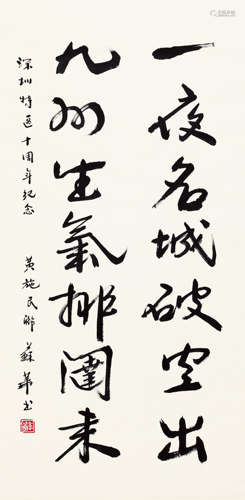 一夜名城破空出
九州生氣排闥来
深圳特区十周年纪念
黄施民聯 蘇華书